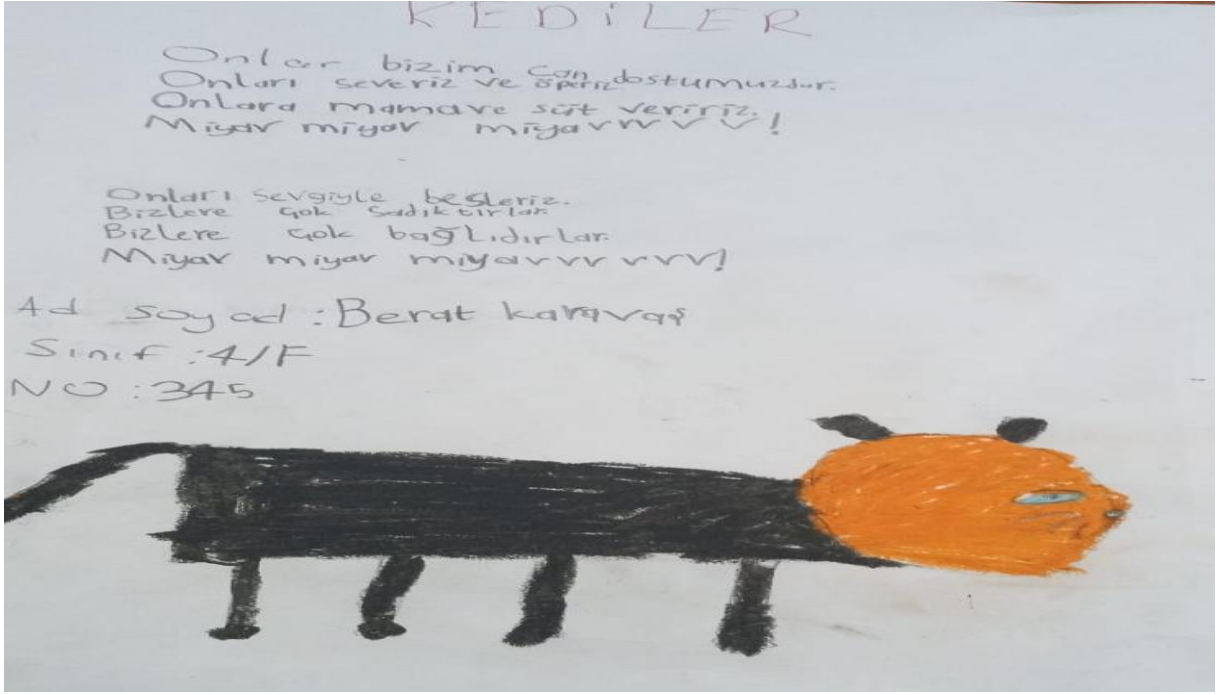 KEDİLER
Onlar bizim can dostumuzdur.
Onları severiz ve öperiz
Onlara mama ve süt veririz.
Miyav miyav miyavvvvv!
Onları sevgiyle besleriz.
Bizlere çok sadıktırlar.
Bizlere çok bağlıdırlar.
Miyav miyav miyavvvvvvv!
Ad soyad : Berat karavaş
Sınıf : 4/F
NO : 345